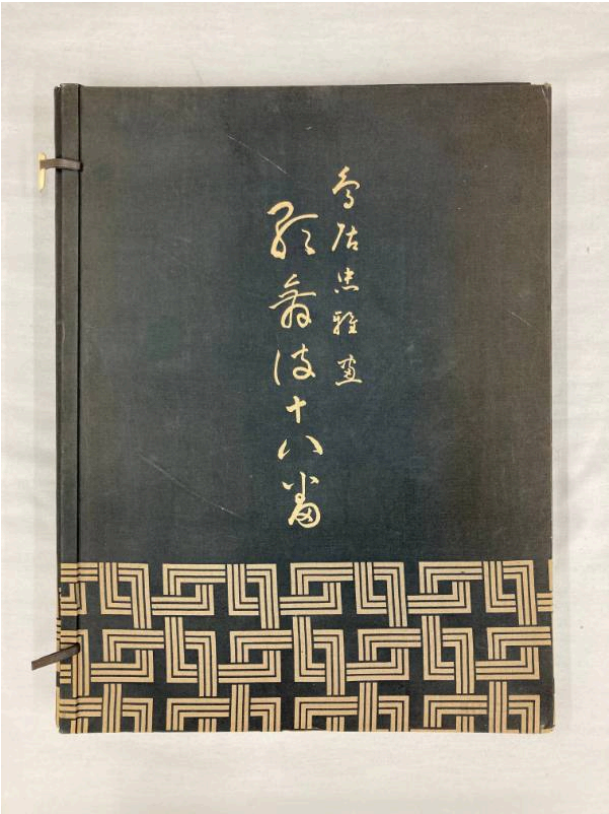 鳥居忠雅画
歌舞伎十八番